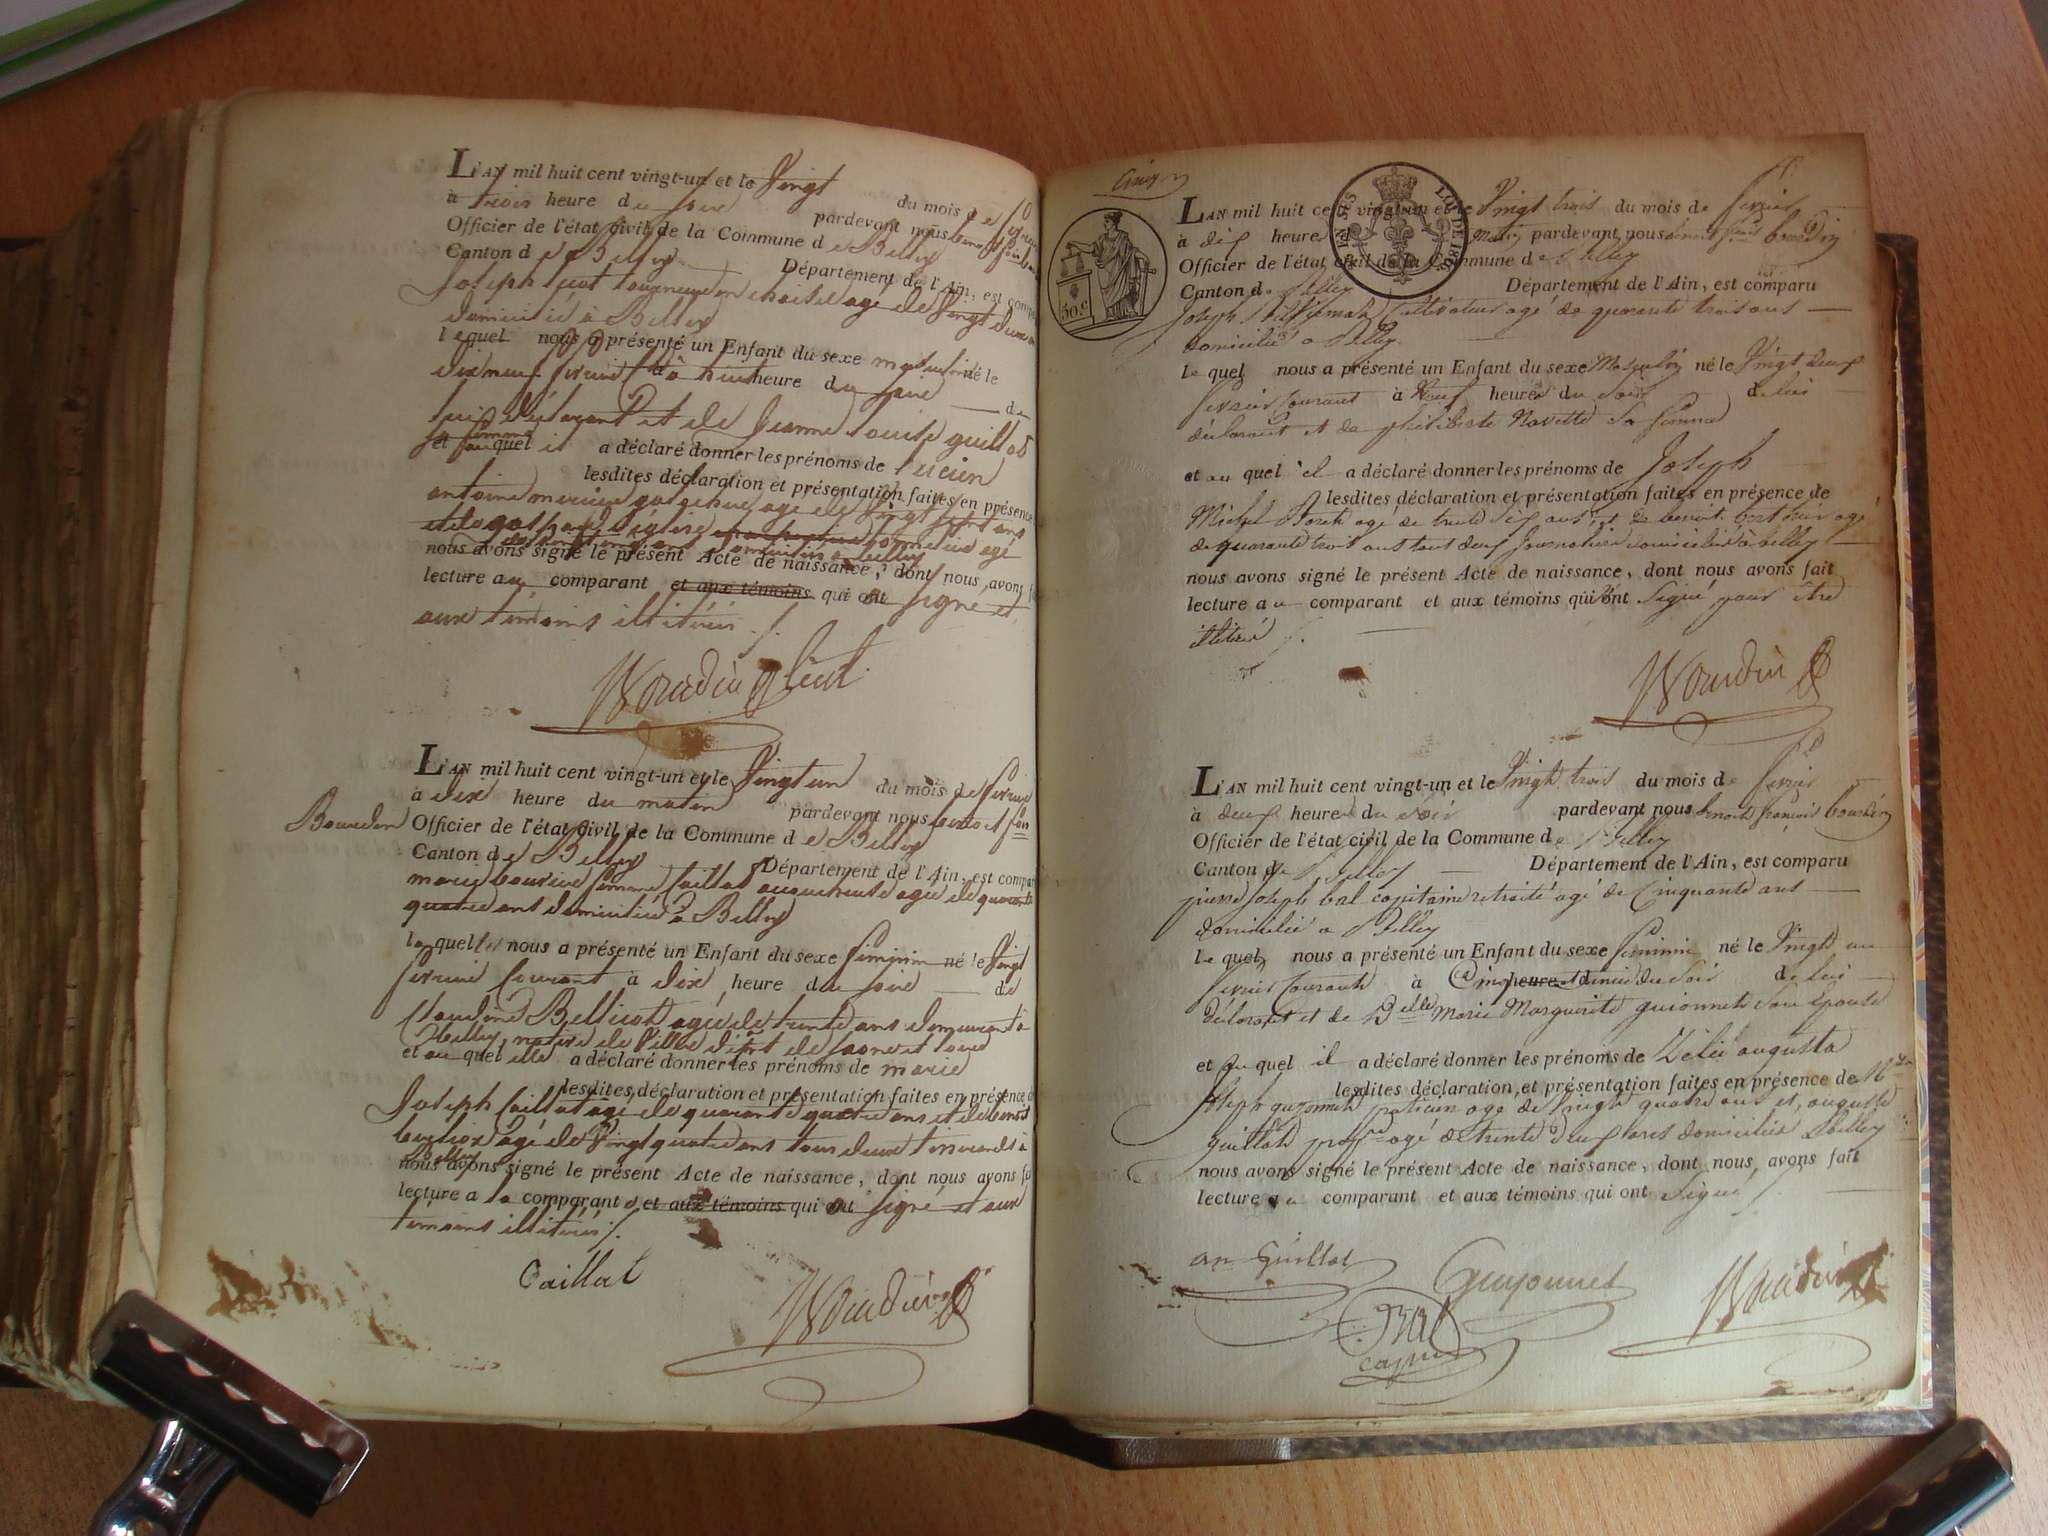 L'AN mil huit cent vingt-un et le Vingt du mois de février
à trois heure du soir pardevant nous benoit
Officier de l'état civil de la Commune de Belley
Canton de Belley Département de l'Ain, est compa
Joseph tourneur en chaise agé de Vingt
domicilié à Belley
lequel nous a présenté un Enfant du sexe masculin né le
dix neuf février à huit heure du soir de
lui déclarant et de Jeanne Louise guillot
sa femme
et auquel il a déclaré donner les prénoms de Lucien
lesdites déclaration et présentation faites en présence
antoine mercier agé de Vingt sept ans
domiciliés à belley
nous avons signé le présent Acte de naissance, dont nous avons f
lecture au comparant et aux témoins qui ont signé et
aux témoins illitérés ./.
Bourdin
L'AN mil huit cent vingt-un et le Vingt un du mois de février
à dix heure du matin pardevant nous benoit fois
Bourdin Officier de l'état civil de la Commune de Belley
Canton de Belley Département de l'Ain, est compar
marie femme Caillat accucheuse agée de quarante
quatre ans domiciliée à Belley
laquelle nous a présenté un Enfant du sexe féminin né le Vingt
février Courant à dix heure du soir de
Claudine Bellicot agée de trente ans demeurant à
Belley, native de dépt de saone et loire
et auquel elle a déclaré donner les prénoms de marie
lesdites déclaration et présentation faites en présence d
Joseph Caillat agé de quarante quatre ans et de benoit
agé de Vingt quatre ans tous deux tisserands à
Belley
nous avons signé le présent Acte de naissance, dont nous avons f
lecture a la comparant e et aux témoins qui ont signé et aux
témoins illitérés ./.
Caillat
Bourdin
Cinq
TIMBRE ROYAL
50.c
L'AN mil huit cent vingt-un et le Vingt trois du mois de février
à dix heure du matin pardevant nous benoit françois bourdin
Officier de l'état civil de la Commune de Belley
Canton de Belley Département de l'Ain, est comparu
Joseph Cultivateur agé de quarante trois ans
domicilié à Belley
lequel nous a présenté un Enfant du sexe Masculin né le Vingt deux
février courant à Neuf heures du soir de lui
déclarant et de philiberte Navette sa femme
et au quel il a déclaré donner les prénoms de Joseph
lesdites déclaration et présentation faites en présence de
Michel agé de trente six ans et de benoit berthier agé
de quarante trois ans tout deux Journaliers domiciliés à belley
nous avons signé le présent Acte de naissance, dont nous avons fait
lecture au comparant et aux témoins qui n'ont signé pour être
illitéré ./.
Bourdin
L'AN mil huit cent vingt-un et le Vingt trois du mois de février
à deux heure du soir pardevant nous benoit françois bourdin
Officier de l'état civil de la Commune de Belley
Canton de Belley Département de l'Ain, est comparu
pierre Joseph bal capitaine retraité agé de Cinquante ans
domicilié à Belley
lequel nous a présenté un Enfant du sexe féminin né le Vingt un
février Courant à Cinq heure et demie du soir de lui
déclarant et de Delle Marie Marguerite guionnet son Epouse
et au quel il a déclaré donner les prénoms de Zélie augusta
lesdites déclaration et présentation faites en présence de
Joseph guyonnet praticien agé de Vingt quatre ans et, auguste
guillot agé de trente deux tous domiciliés à belley
nous avons signé le présent Acte de naissance, dont nous avons fait
lecture au comparant et aux témoins qui ont Signé ./.
an Guillot
Guyonnet
Bourdin
Bal
capne